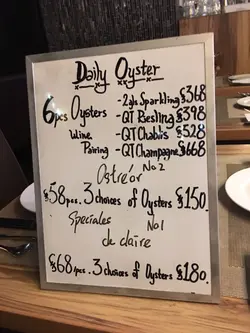 Daily Oyster
6pcs Oysters - 2gls Sparkling $368
- QT Riesling $398
Wine - QT Chablis $528
Pairing - QT Champagne $668
Ostré'or No2
$58/pcs. 3 choices of Oysters $150
Speciales No1
de claire
$68/pcs. 3 choices of Oysters $180